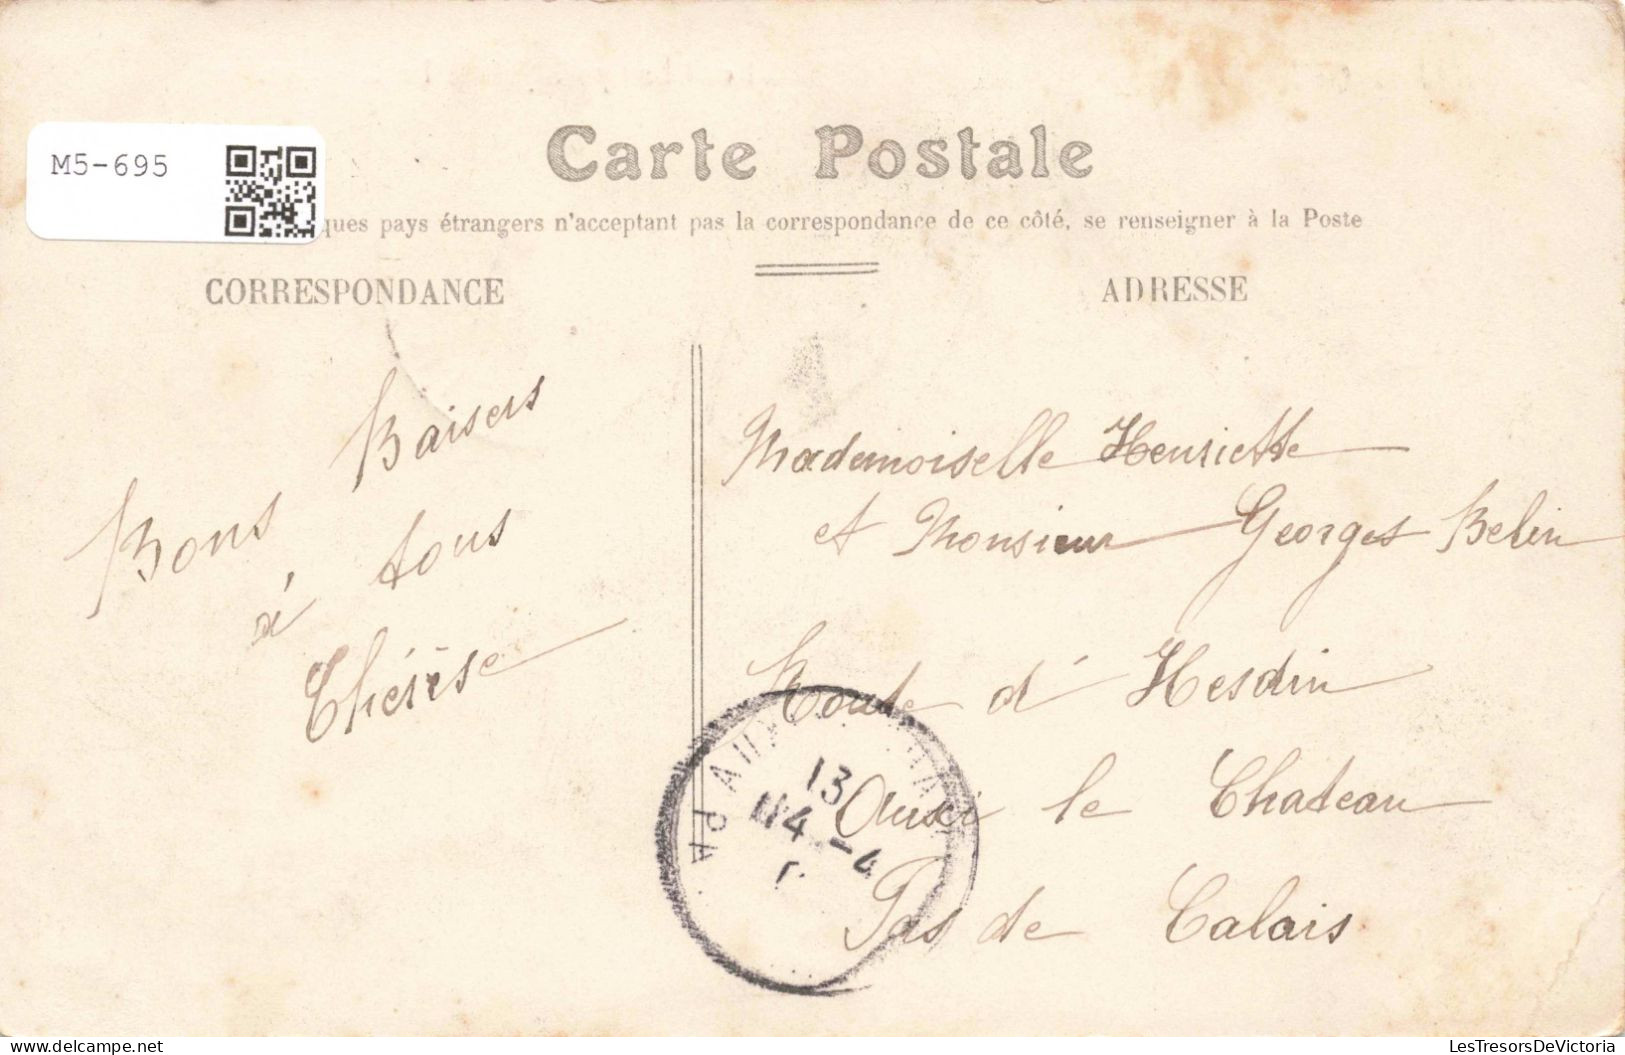 M5-695
Carte Postale
ques pays étrangers n'acceptant pas la correspondance de ce côté, se renseigner à la Poste
CORRESPONDANCE
ADRESSE
Bons Baisers
à tous
Thérèse
Mademoiselle Henriette
et Monsieur Georges Belin
Route d'Hesdin
Auxi le Chateau
Pas de Calais
13
4
www.delcampe.net
LesTresorsDeVictoria